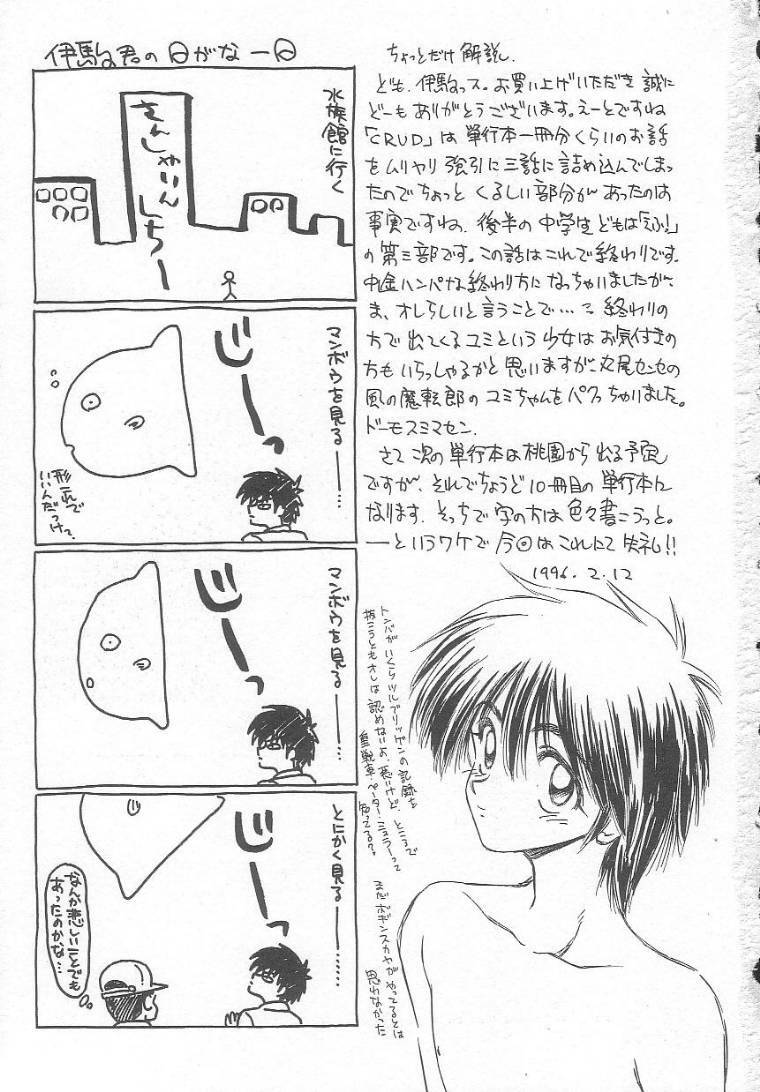 ちょっとだけ解説.
ども.伊駒っス。お買い上げいただき誠に
どーもありがとうございます。えーとですね
「CRUD」は単行本一冊分くらいのお話
をムリヤリ強引に三話に詰め込んでしまっ
たのでちょっとくるしい部分があったのは
事実ですね。後半の中学は
の第三部です。この話はこれで終わりです。
中途ハンパな終わり方になっちゃいましたが、
ま、オレらしいと言うことで…終わりの
方で出てくるユミという少女はお気付きの
方もいらっしゃるかと思いますが、丸尾センセの
風の魔転郎のユミちゃんをパクっちゃいました。
ドーモスミマセン.
さて次の単行本は桃園から出る予定
ですが、それでちょうど10冊目の単行本に
なります.そっちで字の方は色々書こうっと。
――というワケで今回はこれにて失礼!!
1996.2.12
伊駒君の日がな一日
水族館に行く
さんしゃいんしちー
マンボウを見る――…
じーっ
形これで
いいんだっけ?
マンボウを見る――…
じーっ
とにかく見る――……
じーっ
なんか悲しいことでも
あったのかな…
トンバがいくらツルブリッゲンの記録を
抜こうともオレは認めないよ.悪いけど.ところで
重戦車.ペーター.ミュラーって
知ってる?
まだボギンスカヤがやってるとは
思わなかった